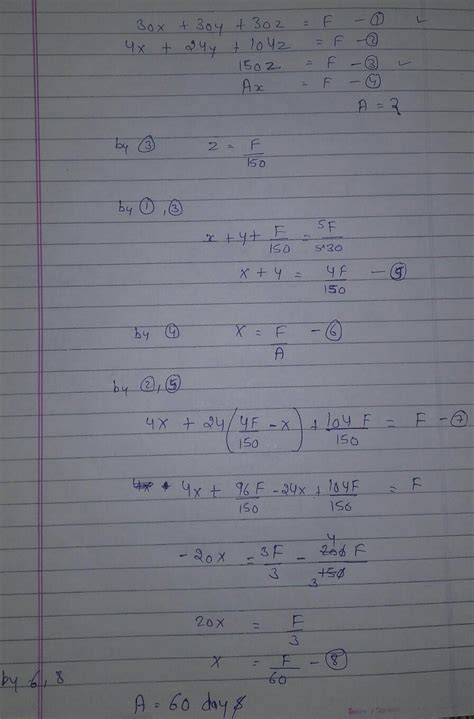 30x + 30y + 30z = F - ① ✓
4x + 24y + 104z = F - ②
150z = F - ③ ✓
Ax = F - ④
A = ?
by ③ z = F/150
by ①, ③
x + y + F/150 = 5F/5*30
x + y = 4F/150 - ⑤
by ④ x = F/A - ⑥
by ②, ⑤
4x + 24(4F/150 - x) + 104F/150 = F - ⑦
4x + 96F/150 - 24x + 104F/150 = F
-20x = 3F/3 - 4 200F/3 150
20x = F/3
x = F/60 - ⑧
by 6, 8
A = 60 days